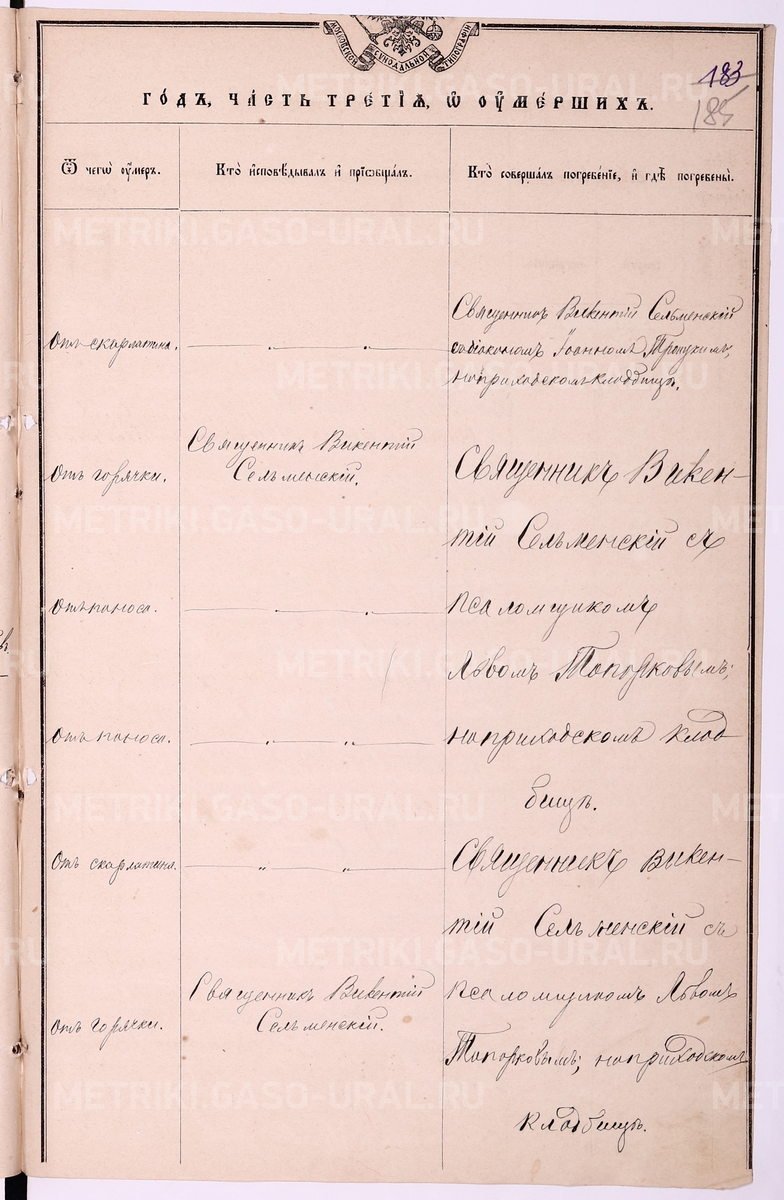 МОСКОВСКОЙ СѴНОДАЛЬНОЙ ТИПОГРАФІИ
183
185
ГО́ДЪ, ЧА́СТЬ ТРЕ́ТІѦ, Ѡ҆ ОУ҆МЕ́РШИХЪ.
Ѿ чегѡ̀ оу҆́меръ.
Кто̀ и҆сповѣ́дывалъ и҆ прїѡбща́лъ.
Кто̀ соверша́лъ погребе́нїе, и҆ гдѣ̀ погребены̀.
Отъ скарлатины.
Священникъ Викентій Сельменскій
съ діакономъ Іоанномъ
на приходскомъ кладбищѣ.
Отъ горячки.
Священникъ Викентій
Сельменскій.
Священникъ Викен-
тій Сельменскій съ
Отъ поноса.
псаломщикомъ
Львомъ Топорковымъ;
Отъ поноса.
на приходскомъ клад
бищѣ.
Отъ скарлатины.
Священникъ Викен-
тій Сельменскій съ
Отъ горячки.
Священникъ Викентій
Сельменскій.
псаломщикомъ Львомъ
Топорковымъ; на приходскомъ
кладбищѣ.
METRIKI.GASO-URAL.RU